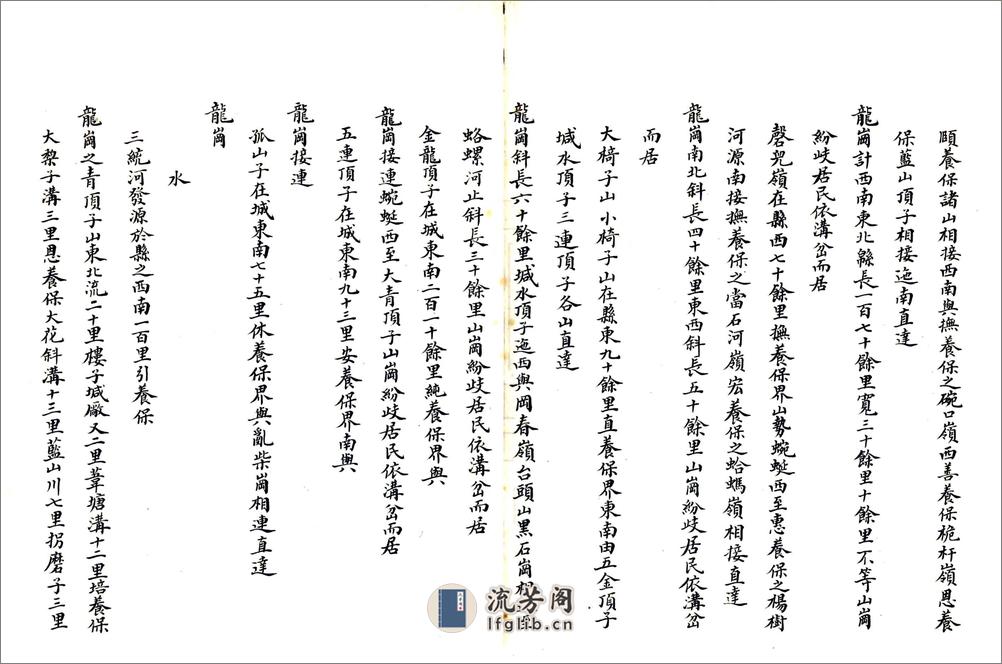 頤養保諸山相接西南與撫養保之碗口嶺西善養保桅杆嶺恩養
保藍山頂子相接迤南直達
龍崗計西南東北緜長一百七十餘里寬三十餘里十餘里不等山崗
紛歧居民依溝岔而居
磬兒嶺在縣西七十餘里撫養保界山勢蜿蜒西至惠養保之楊樹
河源南接撫養保之當石河嶺宏養保之蛤螞嶺相接直達
龍崗南北斜長四十餘里東西斜長五十餘里山崗紛歧居民依溝岔
而居
大椅子山小椅子山在縣東九十餘里直養保界東南由五金頂子
堿水頂子三連頂子各山直達
龍崗斜長六十餘里堿水頂子迤西與岡春嶺台頭山黑石崗相
蛒螺河止斜長三十餘里山崗紛歧居民依溝岔而居
金龍頂子在城東南二百一十餘里純養保界與
龍崗接連蜿蜒西至大青頂子山崗紛歧居民依溝岔而居
五連頂子在城東南九十三里安養保界南與
龍崗接連
孤山子在城東南七十五里休養保界與亂柴崗相連直達
龍崗
水
三統河發源於縣之西南一百里引養保
龍崗之青頂子山東北流二十里樓子堿廠又二里葦塘溝十二里培養保
大梨子溝三里恩養保大花斜溝十三里藍山川七里拐磨子三里
流芳阁
lfglib.cn